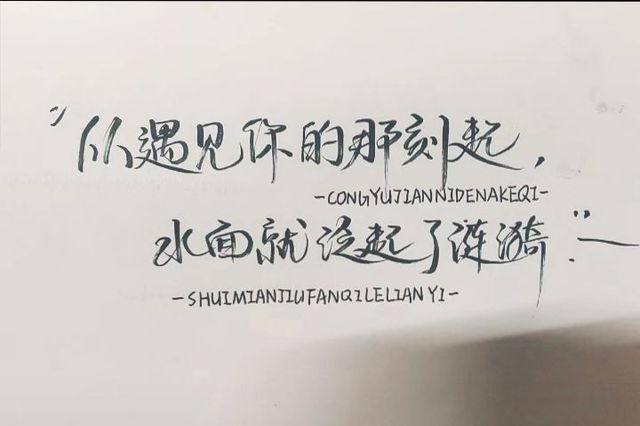 “从遇见你的那刻起，
-CONGYUJIANNIDENAKEQI-
水面就泛起了涟漪.”—
-SHUIMIANJIUFANQILELIANYI-